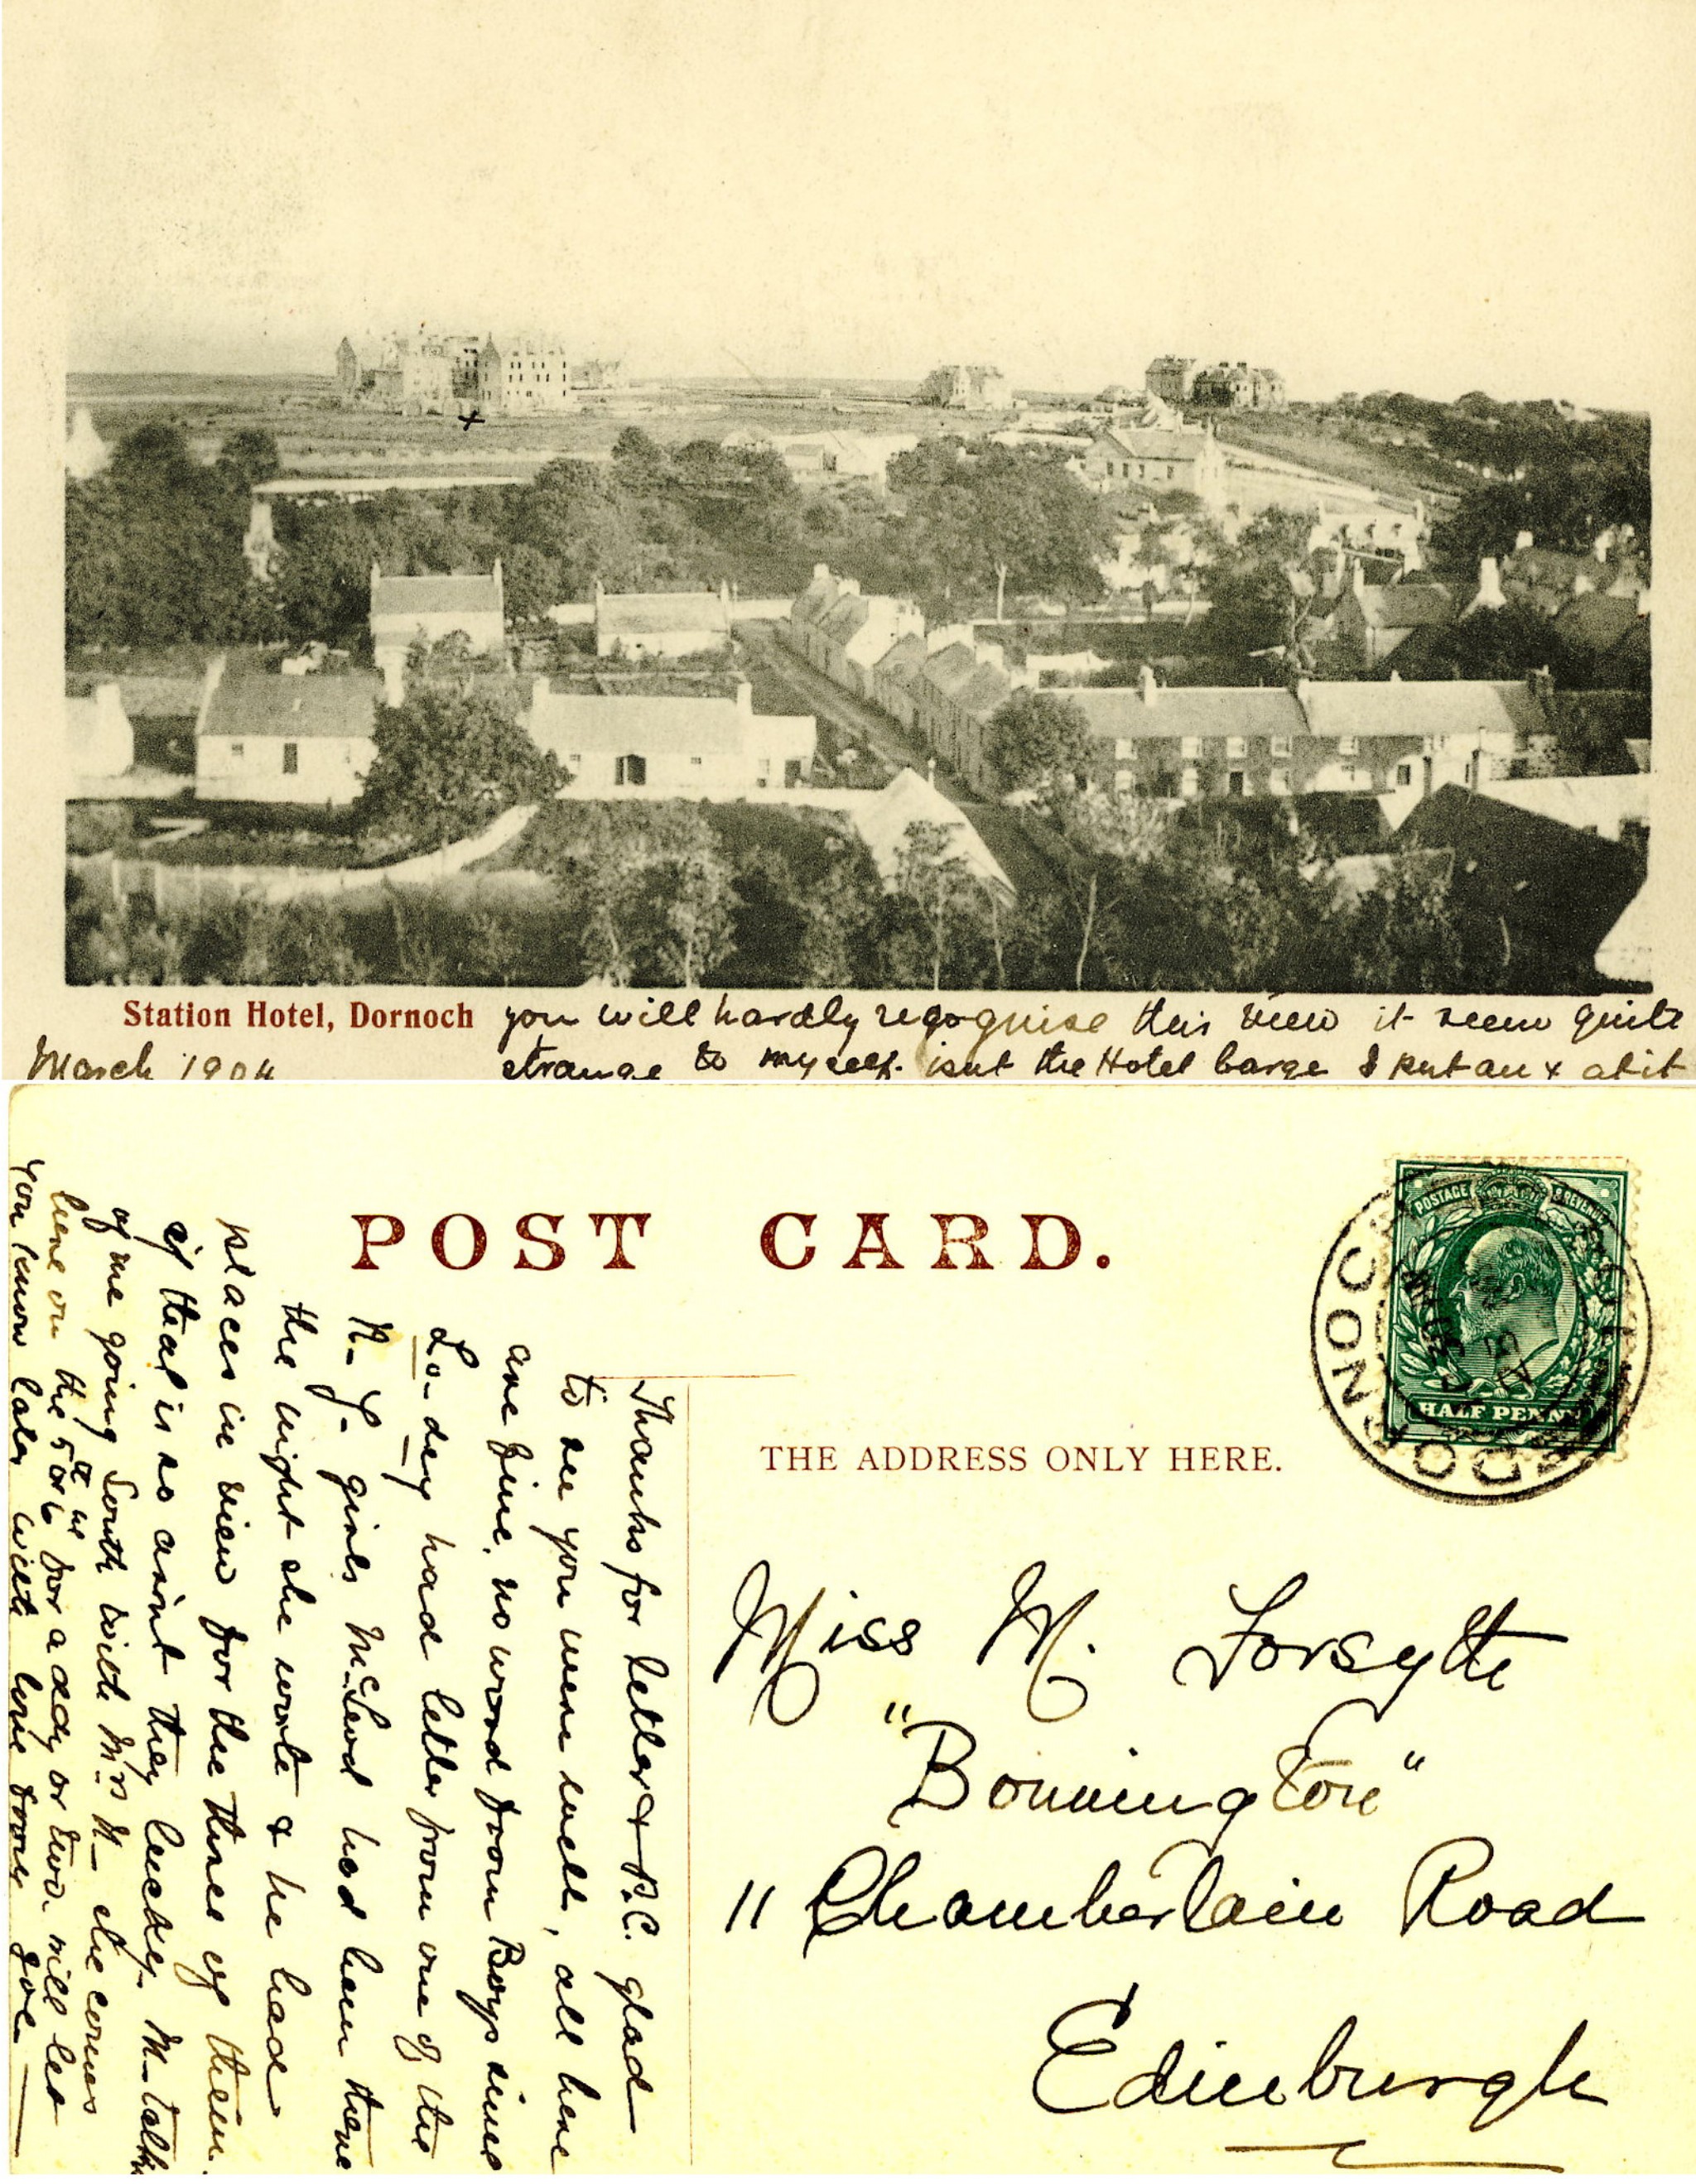 Station Hotel, Dornoch
you will hardly regognise this view it seems quite
March 1904
strange to myself. isnt the Hotel large I put an x at it
POST CARD.
POSTAGE & REVENUE
HALF PENNY
DORNOCH
THE ADDRESS ONLY HERE.
Miss M. Forsyth
"Bonnington"
11 Chamberlain Road
Edinburgh
Thanks for letter & P.C. glad
to see you were well, all here
are fine, no word from Boys since
had letter from one of the
N. Y. girls McLeod had been there
the night she wrote & he had
places in view for the three of them.
if that is so aint they lucky. M- talks
of me going South with Mrs M- she comes
here on the 5th or 6 for a day or two. will let
you know later with love from Joe